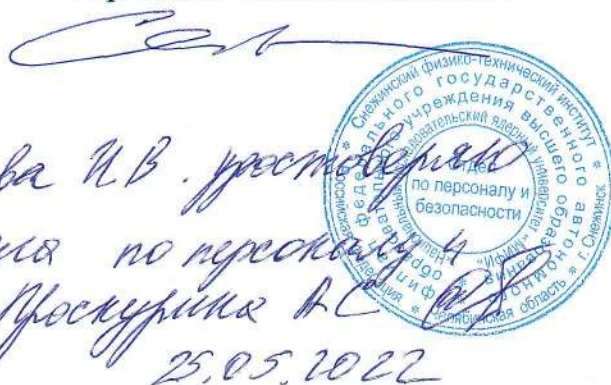 ва И.В. удостоверяю
по персоналу и
Проскурина А С
25.05.2022
Снежинский физико-технический институт
г. Снежинск
Челябинская область
Российская Федерация
филиал федерального государственного автономного
образовательного учреждения высшего образования
Национальный исследовательский ядерный университет «МИФИ»
Отдел
по персоналу и
безопасности